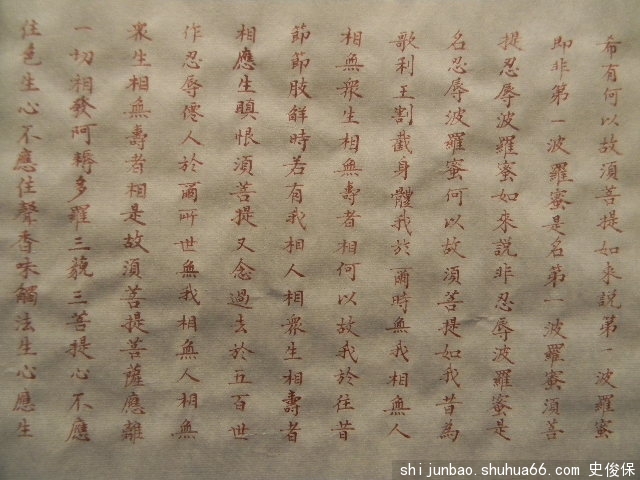 希有何以故須菩提如來說第一波羅蜜
即非第一波羅蜜是名第一波羅蜜須菩
提忍辱波羅蜜如來說非忍辱波羅蜜是
名忍辱波羅蜜何以故須菩提如我昔為
歌利王割截身體我於爾時無我相無人
相無眾生相無壽者相何以故我於往昔
節節肢解時若有我相人相眾生相壽者
相應生瞋恨須菩提又念過去於五百世
作忍辱僊人於爾所世無我相無人相無
衆生相無壽者相是故須菩提菩薩應離
一切相發阿耨多羅三藐三菩提心不應
住色生心不應住聲香味觸法生心應生
shijunbao.shuhua66.com 史俊保